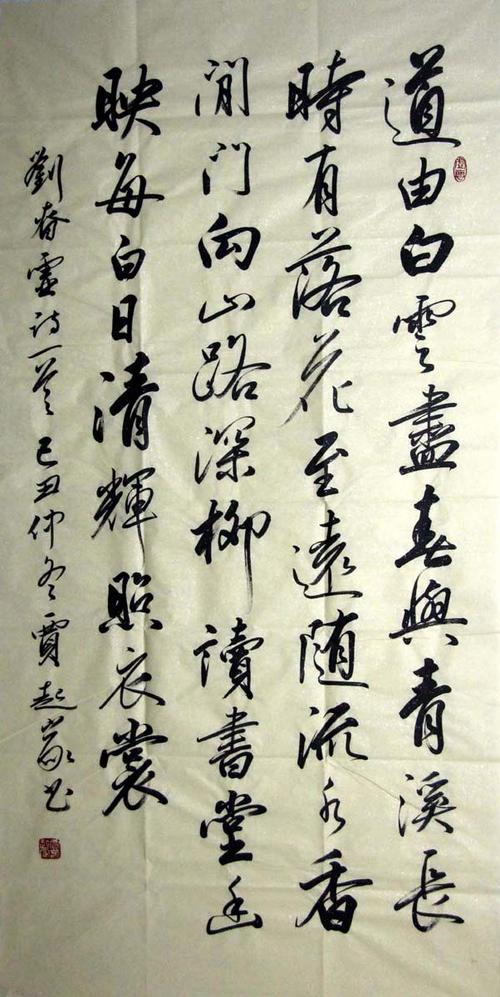 道由白雲盡春與青溪長
時有落花至遠随流水香
閒門向山路深柳讀書堂幽
映每白日清輝照衣裳
劉昚虛詩一首己丑仲冬賈起书